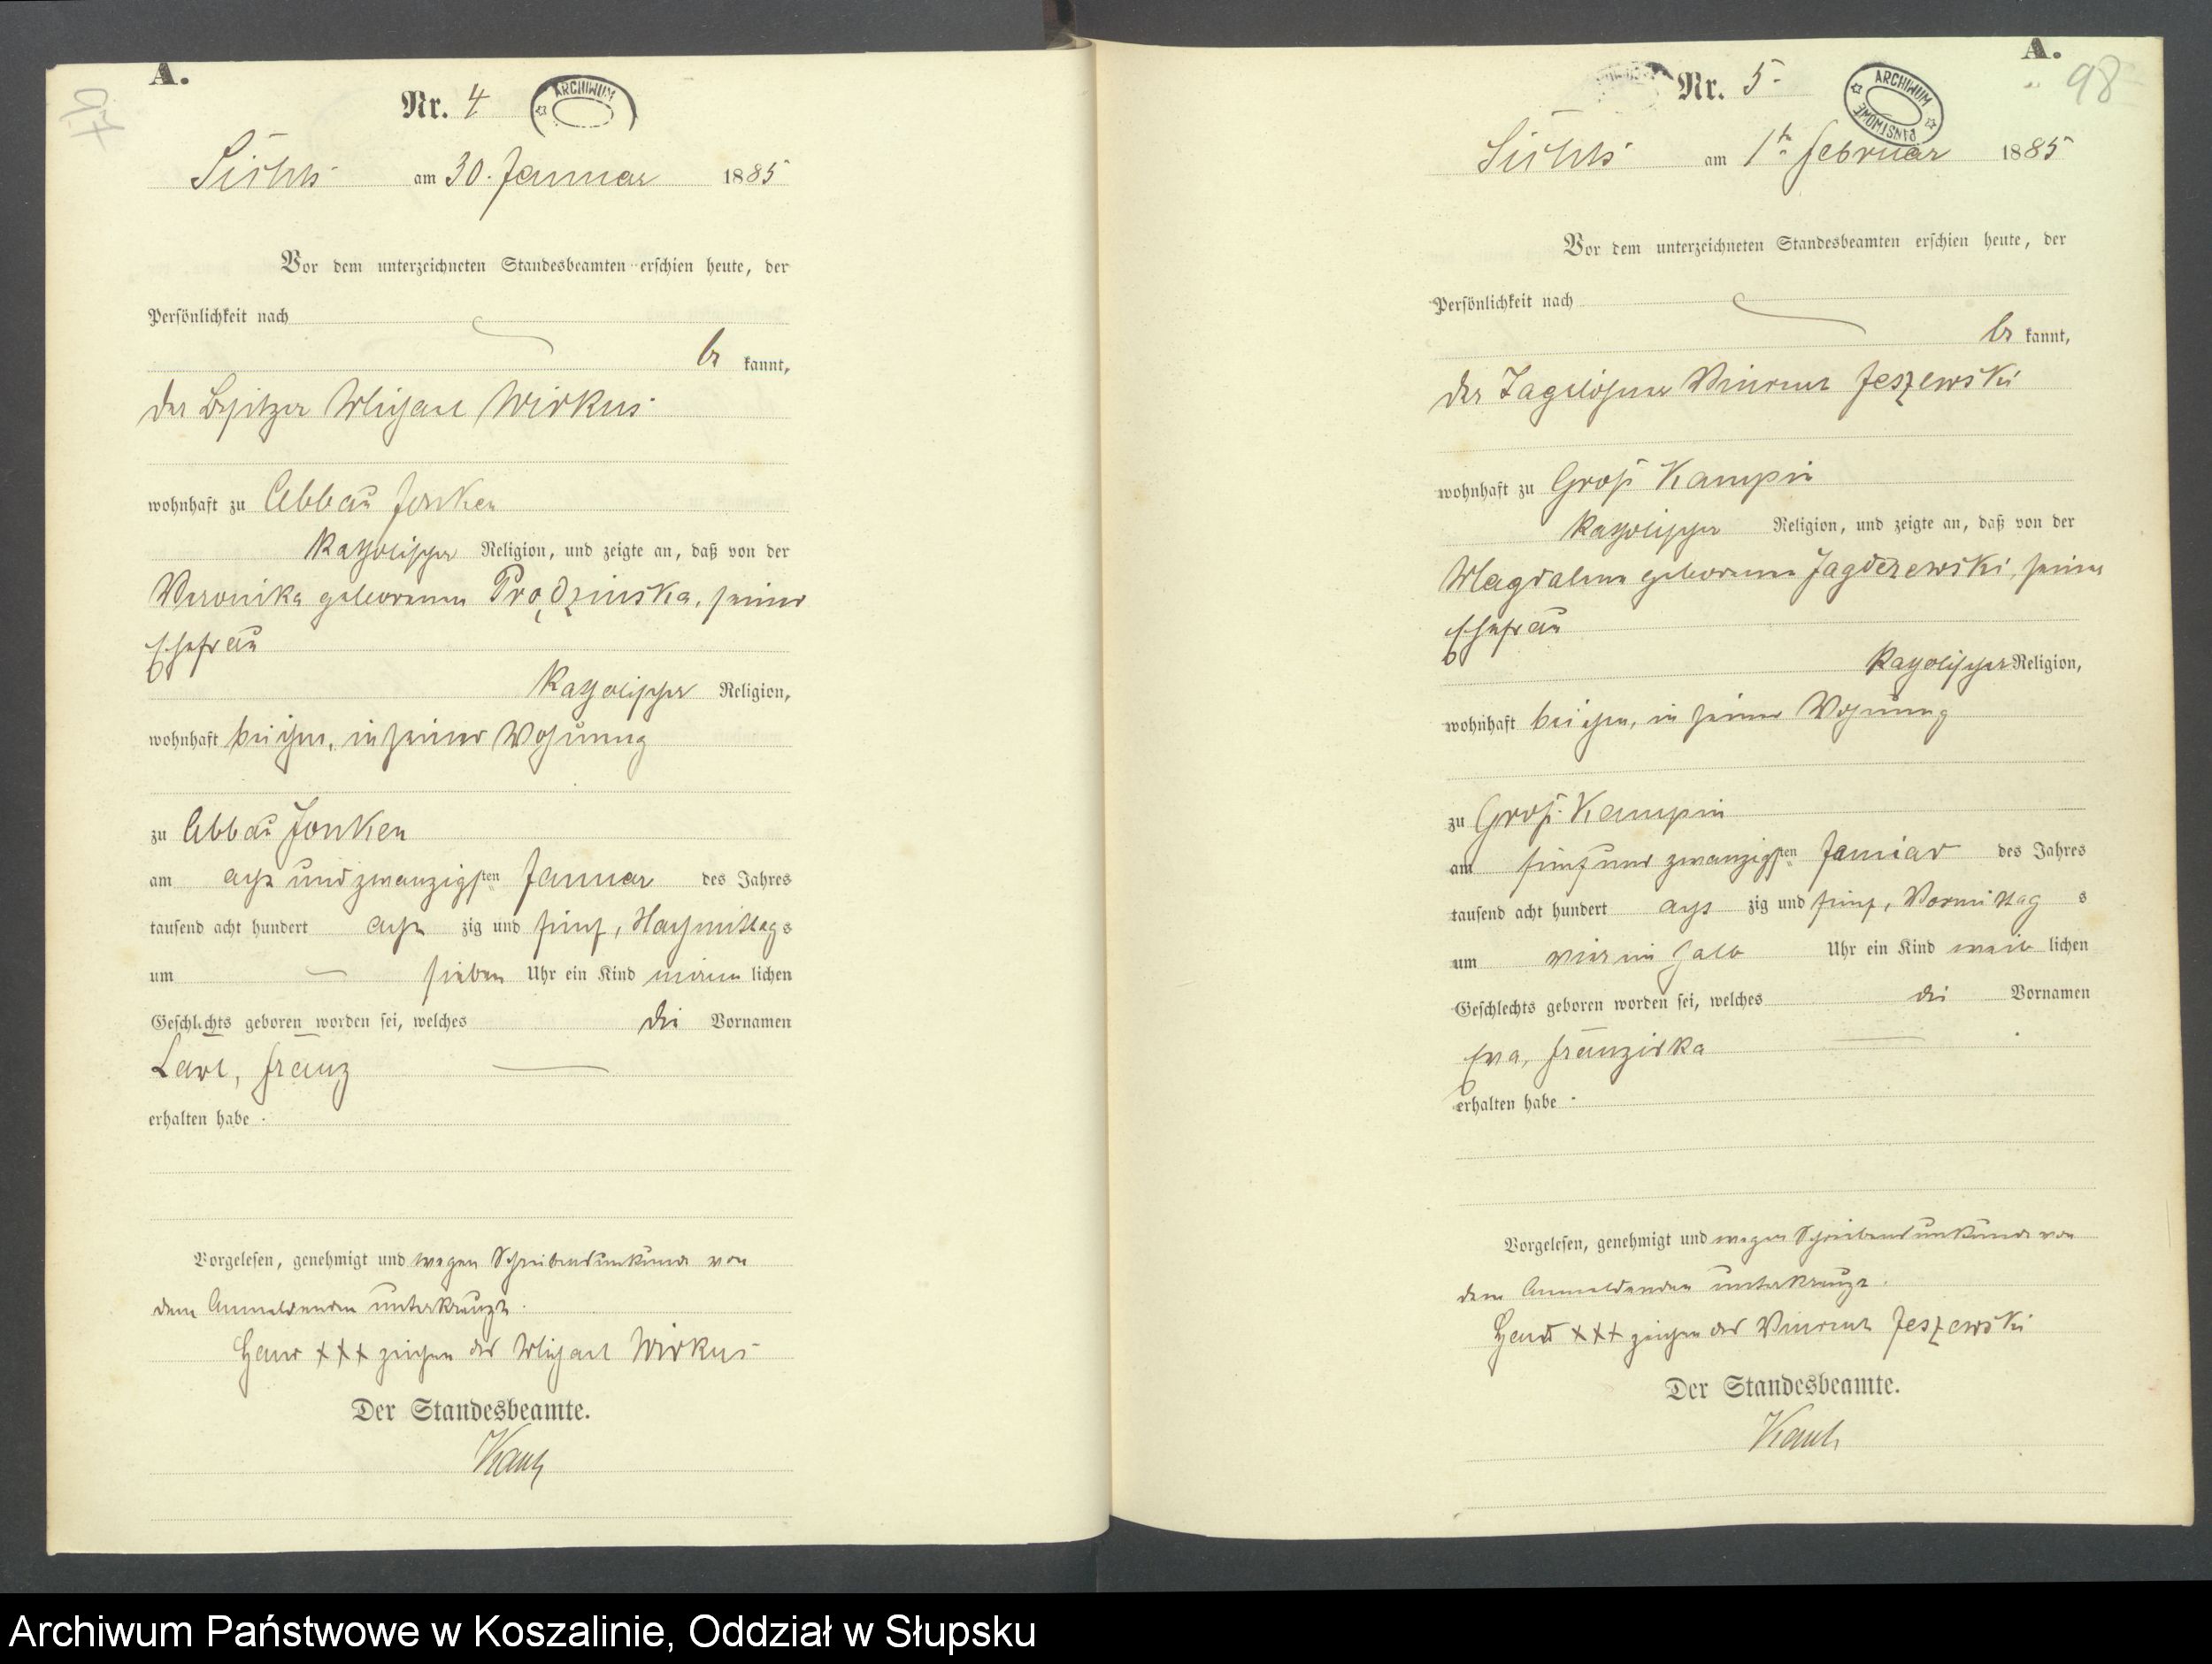 A.
Nr. 4
ARCHIWUM
am 30. Januar 1885
Vor dem unterzeichneten Standesbeamten erschien heute, der
Persönlichkeit nach
be kannt,
der Besitzer Michael Wirkus
wohnhaft zu Abbau Jonken
katholischer Religion, und zeigte an, daß von der
Veronika geborenen Prądzinska, seiner
Ehefrau
katholischer Religion,
wohnhaft bei ihm, in seiner Wohnung
zu Abbau Jonken
am acht und zwanzigsten Januar des Jahres
tausend acht hundert acht zig und fünf, Nachmittags
um sieben Uhr ein Kind männ lichen
Geschlechts geboren worden sei, welches die Vornamen
Carl, Franz
erhalten habe.
Vorgelesen, genehmigt und wegen Schreibensunkunde von
dem Anmeldenden unterkreuzt.
Hand +++ zeichen des Michael Wirkus
Der Standesbeamte.
A.
98
Nr. 5
ARCHIWUM PAŃSTWOWE
am 1ten Februar 1885
Vor dem unterzeichneten Standesbeamten erschien heute, der
Persönlichkeit nach
be kannt,
der Tagelöhner Vincent Jeszewski
wohnhaft zu Groß Kampin
katholischer Religion, und zeigte an, daß von der
Magdalena geborenen Jagdczewski, seiner
Ehefrau
katholischer Religion,
wohnhaft bei ihm, in seiner Wohnung
zu Groß Kampin
am fünf und zwanzigsten Januar des Jahres
tausend acht hundert acht zig und fünf, Vormittag s
um vier ein halb Uhr ein Kind weib lichen
Geschlechts geboren worden sei, welches die Vornamen
Eva, Franziska
erhalten habe.
Vorgelesen, genehmigt und wegen Schreibensunkunde von
dem Anmeldenden unterkreuzt.
Hand +++ zeichen des Vincent Jeszewski
Der Standesbeamte.
Archiwum Państwowe w Koszalinie, Oddział w Słupsku